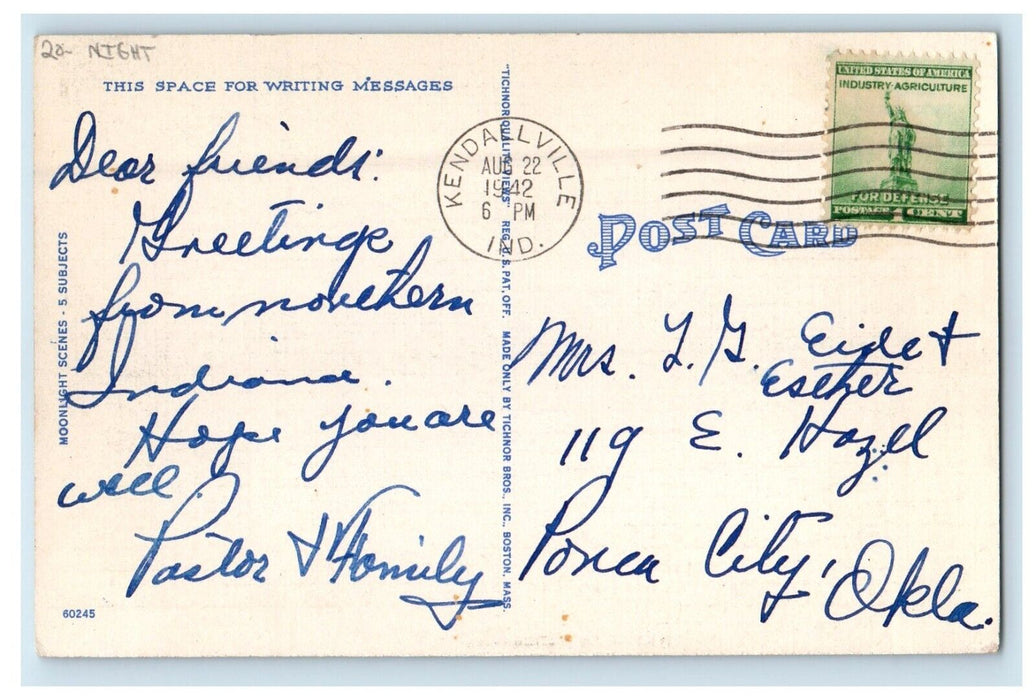 20- NIGHT
THIS SPACE FOR WRITING MESSAGES
Dear friends:
Greetings
from northern
Indiana.
Hope you are
well.
Pastor & Family
MOONLIGHT SCENES - 5 SUBJECTS
60245
"TICHNOR QUALITY VIEWS" REG. U. S. PAT. OFF. MADE ONLY BY TICHNOR BROS., INC., BOSTON, MASS.
KENDALLVILLE
AUG 22
1942
6 PM
IND.
UNITED STATES OF AMERICA
INDUSTRY·AGRICULTURE
FOR DEFENSE
POSTAGE 1 CENT
POST CARD
Mrs. L. G. Eide &
Esther
119 E. Hazel
Ponca City,
Okla.